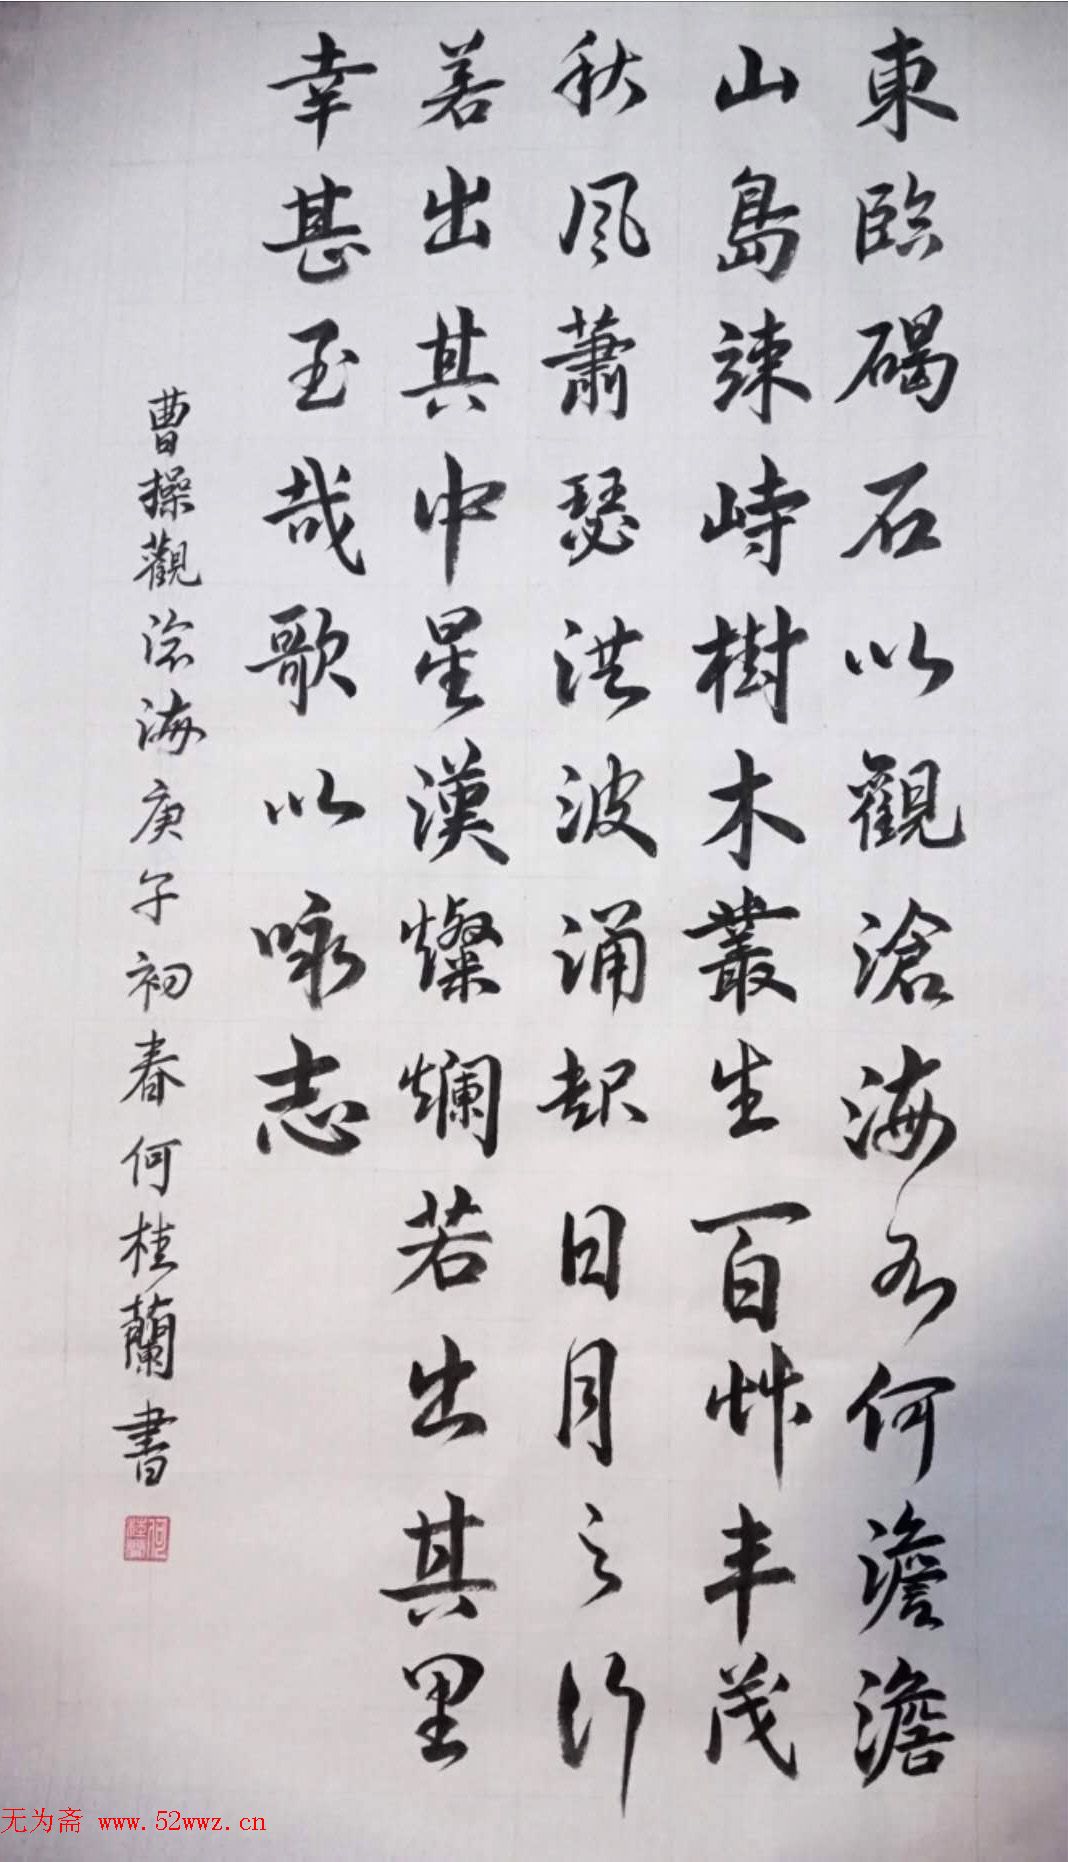 東臨碣石以觀滄海水何澹澹
山島竦峙樹木叢生百艸丰茂
秋风蕭瑟洪波涌起日月之行
若出其中星漢燦爛若出其里
幸甚至哉歌以咏志
曹操觀滄海庚子初春何桂蘭書
无为斋 www.52wwz.cn